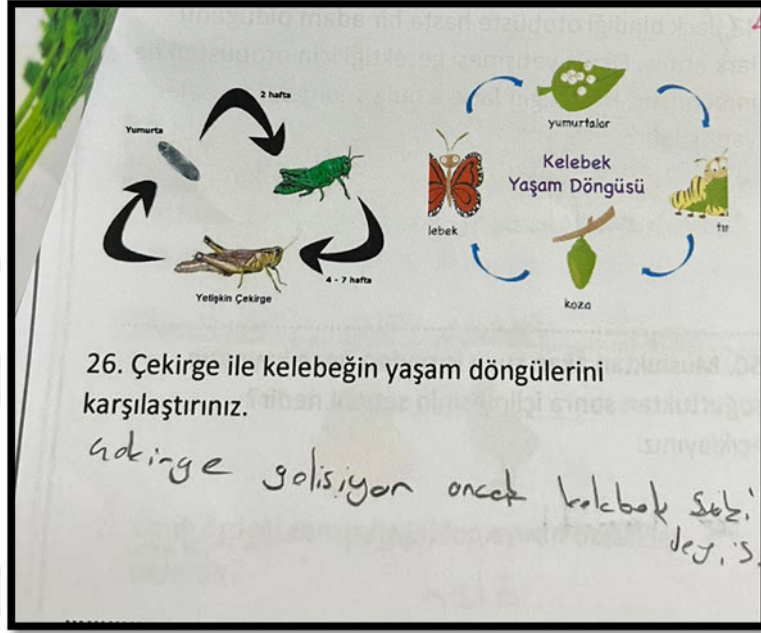 2 hafta
Yumurta
4 - 7 hafta
Yetişkin Çekirge
yumurtalar
Kelebek
Yaşam Döngüsü
lebek
tır
koza
26. Çekirge ile kelebeğin yaşam döngülerini
karşılaştırınız.
gelisiyor ancak kelebek